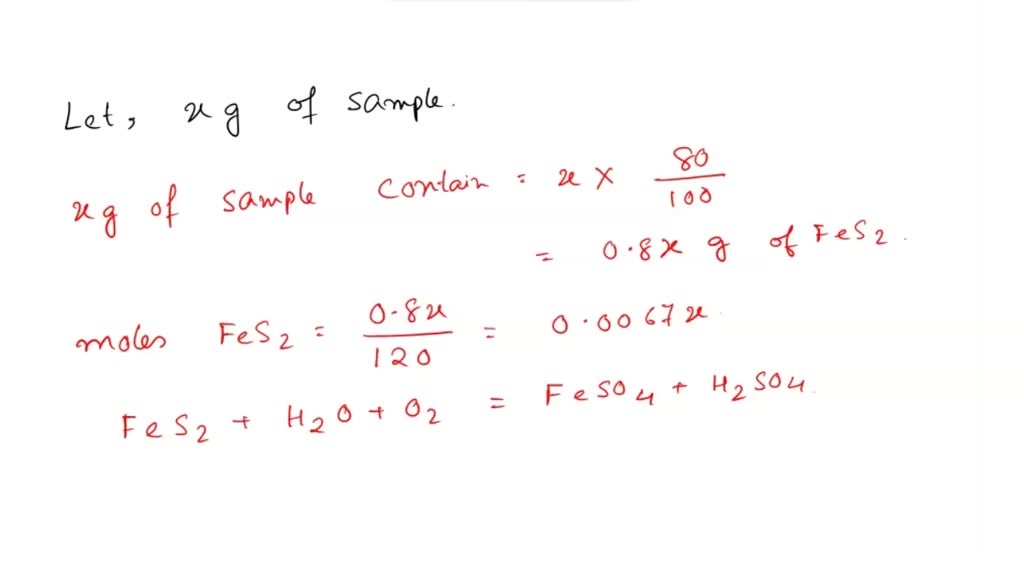 Let, x g of sample.
x g of sample contain = x × 80/100
= 0.8x g of FeS2.
moles FeS2 = 0.8x/120 = 0.0067x
FeS2 + H2O + O2 = FeSO4 + H2SO4.